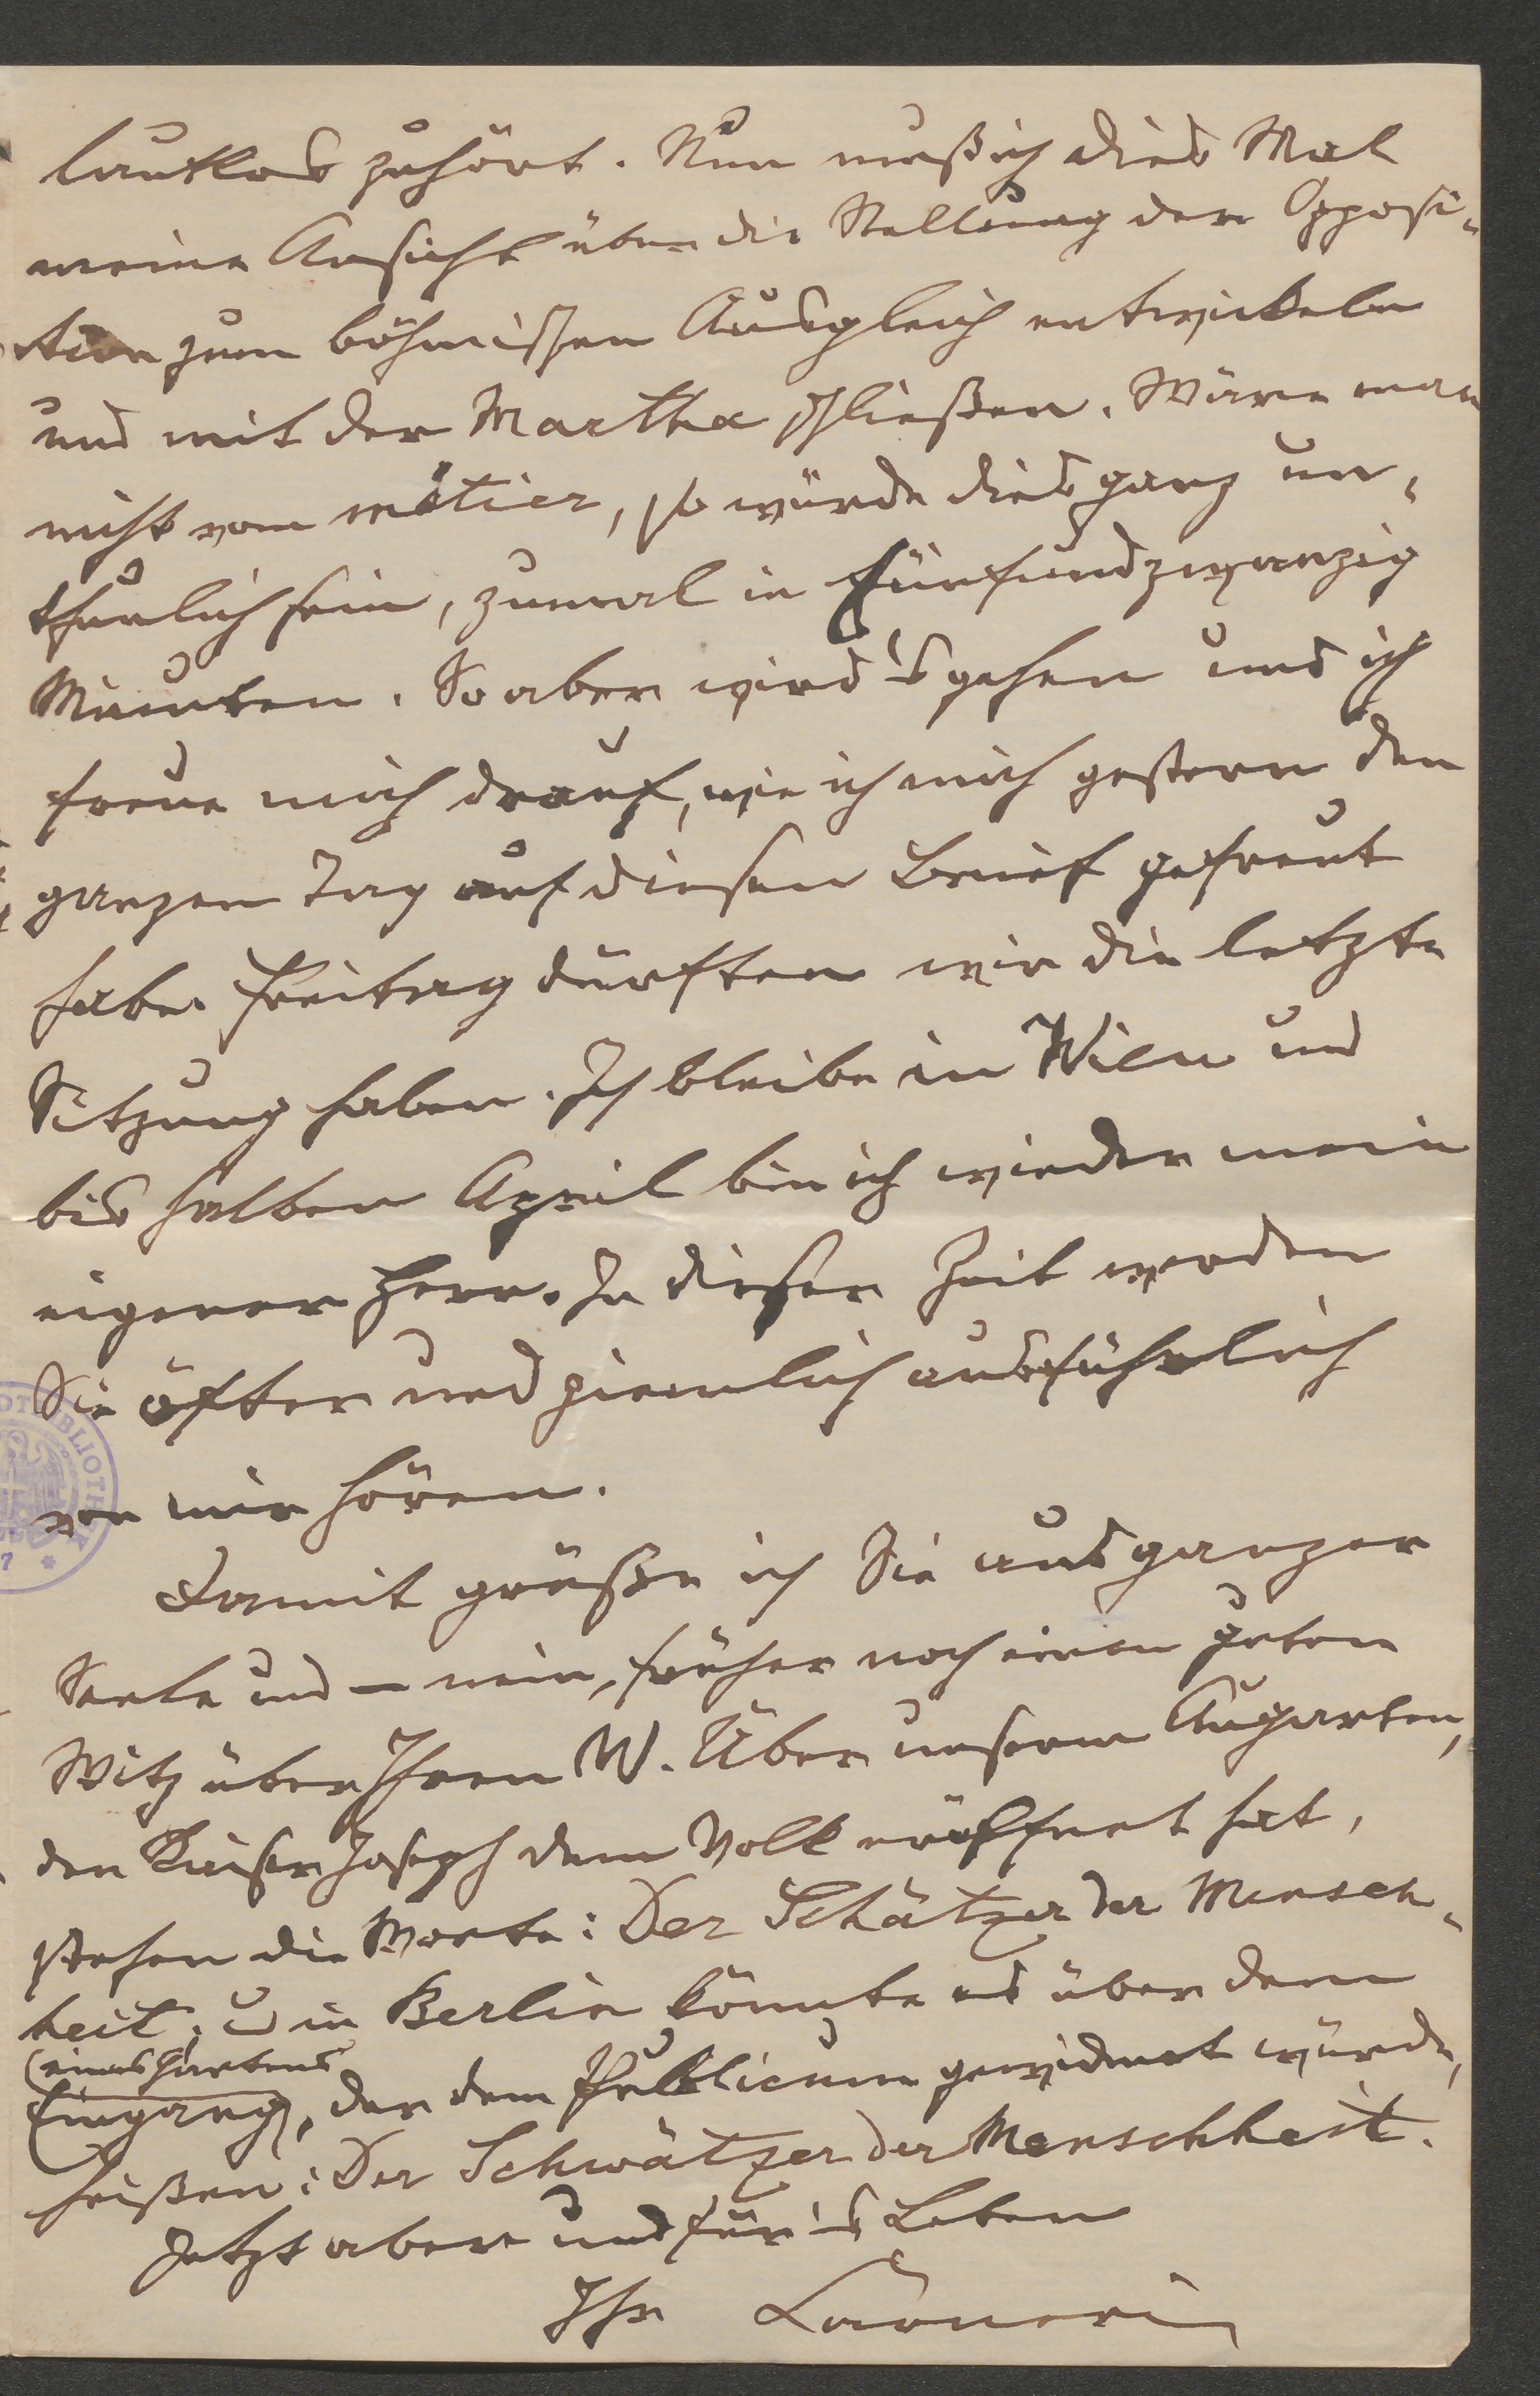 lautlos zuhört. Nun muß ich dies Mal
meine Ansicht über die Stellung der Opposi-
tion zum böhmischen Ausgleich entwickeln
und mit der Martha schließen. Wäre man
nicht vom métier, so würde dies ganz un-
thunlich sein, zumal in fünfundzwanzig
Minuten. So aber wird's gehen und ich
freue mich drauf, wie ich mich gestern den
ganzen Tag auf diesen Brief gefreut
habe. Freitag dürften wir die letzte
Sitzung haben. Ich bleibe in Wien und
bis halben April bin ich wieder mein
eigener Herr. In dieser Zeit werden
Sie öfter und ziemlich ausführlich
von mir hören.
Damit grüße ich Sie aus ganzer
Seele und – nein, früher noch einen guten
Witz über Ihren W. Über unserm Augarten,
den Kaiser Joseph dem Volk eröffnet hat,
stehen die Worte: Der Schätzer der Mensch-
heit; u in Berlin könnte es über dem
(eines Gartens
Eingang), der dem Publicum gewidmet würde,
heißen: Der Schwätzer der Menschheit.
Jetzt aber und für's Leben
Ihr Carneri